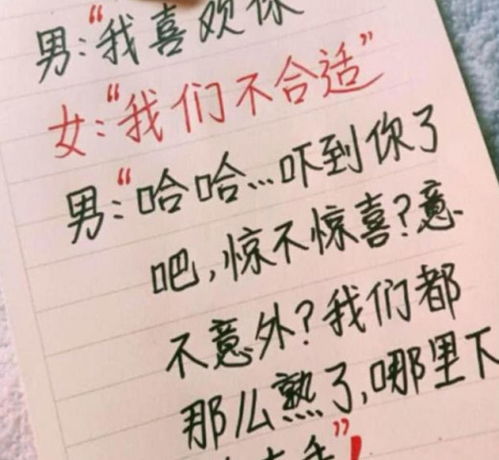 男:“我喜欢你
女:“我们不合适”
男:“哈哈...吓到你了
吧,惊不惊喜?意
不意外?我们都
那么熟了,哪里下
手”!